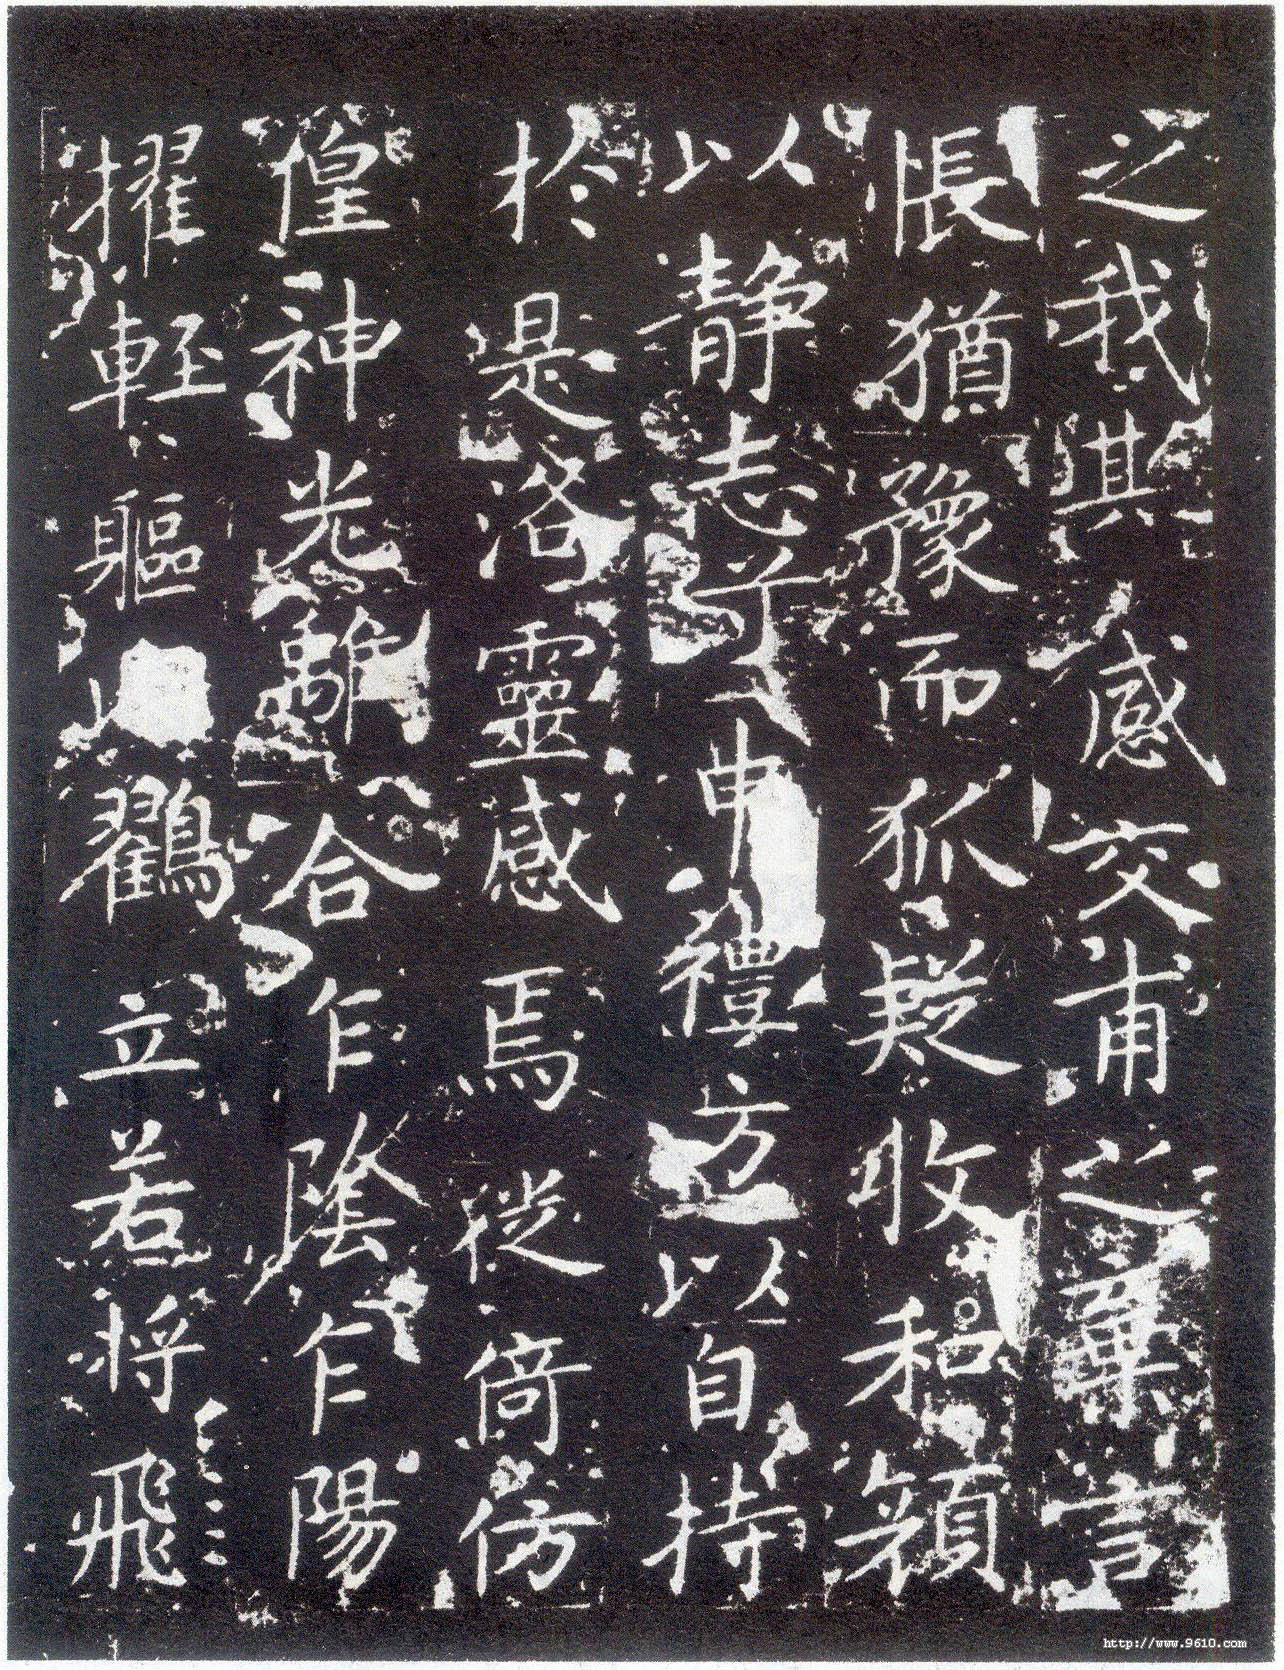 之我其感交甫之棄言
悵猶豫而狐疑收和顏
以静志兮申禮方以自持
於是洛靈感焉徙倚傍
偟神光離合乍陰乍陽
擢輕軀鶴立若將飛
http://www.9610.com